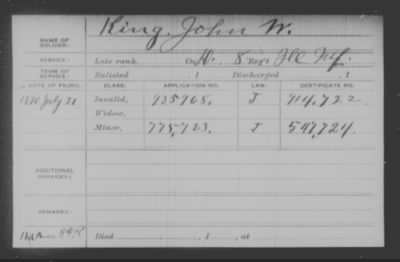 NAME OF SOLDIER: King, John W.
SERVICE: Late rank, Co. H. 8 Reg't Ill Inf.
TERM OF SERVICE: Enlisted , 1 Discharged , 1
DATE OF FILING. CLASS. APPLICATION NO. LAW. CERTIFICATE NO.
July 21 Invalid, 935968. J 914,722
Widow,
Minor, 775,723. J 547,724.
ADDITIONAL SERVICES:
REMARKS:
Died , 1 , at